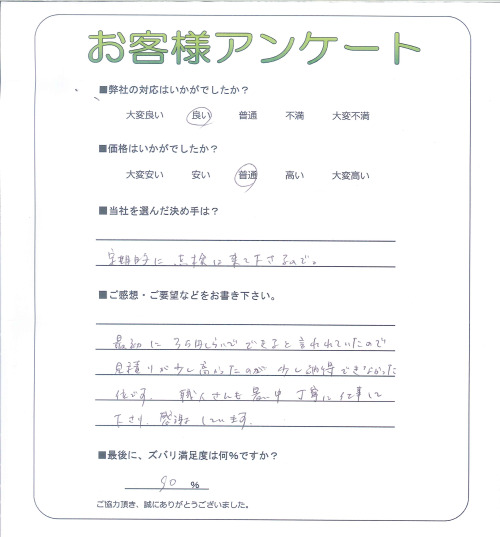 お客様アンケート
■弊社の対応はいかがでしたか？
大変良い 良い 普通 不満 大変不満
■価格はいかがでしたか？
大変安い 安い 普通 高い 大変高い
■当社を選んだ決め手は？
定期的に 点検に来て下さるので。
■ご感想・ご要望などをお書き下さい。
最初に 35万円くらいで できると 言われていたので
見積りが少し高かったのが 少し納得できなかった
位です。 職人さんも 暑い中 丁寧に 仕事して
下さり、感謝しています。
■最後に、ズバリ満足度は何％ですか？
90 ％
ご協力頂き、誠にありがとうございました。